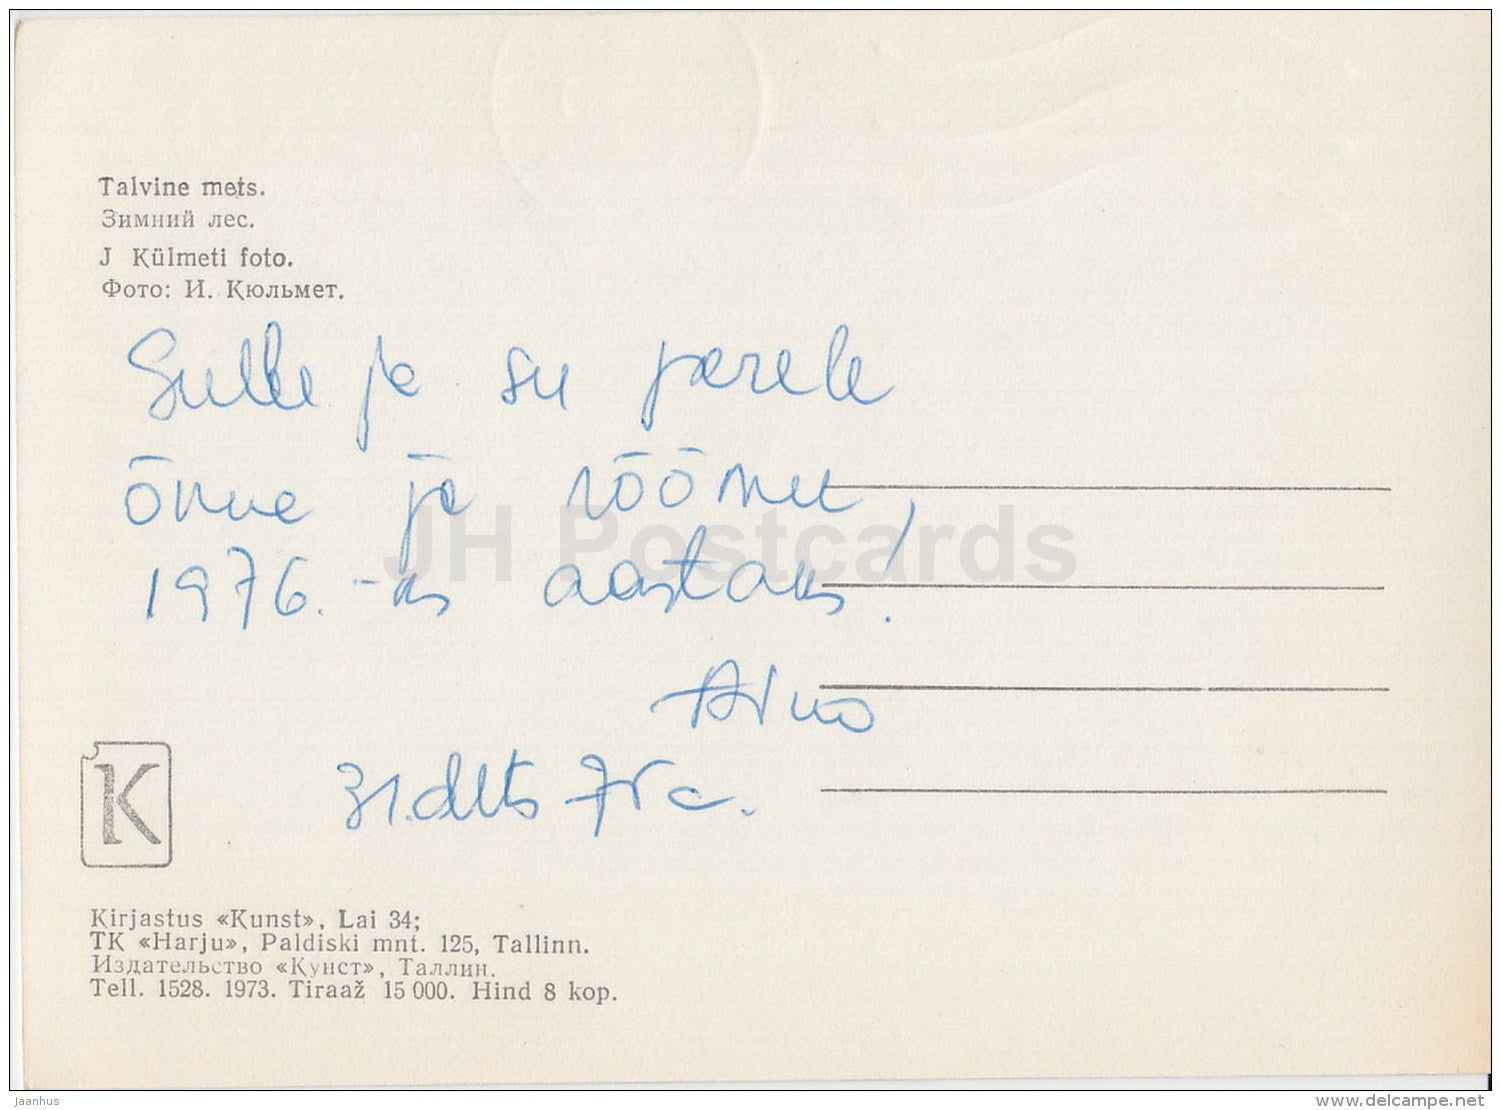 Talvine mets.
Зимний лес.
J Külmeti foto.
Фото: И. Кюльмет.
Sulle ja su perele
õnne ja rõõmu
1976.-ks aastaks!
Arno
31. dets 75 a.
K
Kirjastus «Kunst», Lai 34;
TK «Harju», Paldiski mnt. 125, Tallinn.
Издательство «Кунст», Таллин.
Tell. 1528. 1973. Tiraaž 15 000. Hind 8 kop.
JH Postcards
jaanhus
http://www.delcampe.net